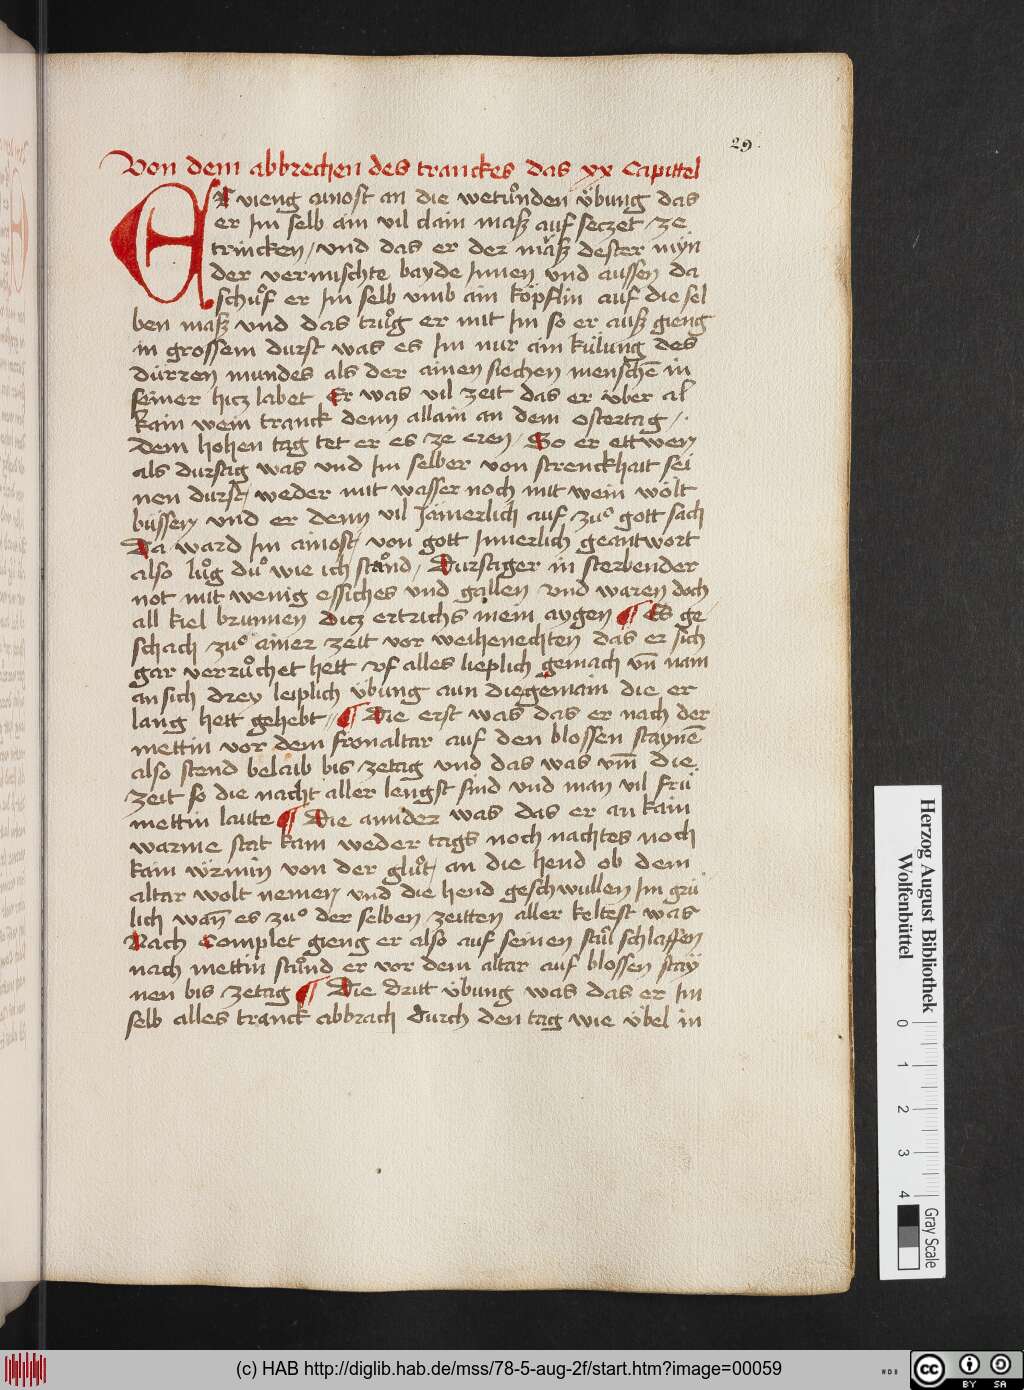 29.
Von dem abbrechen des tranckes das xx Capittel
ER vieng ainost an die wetuͦnden uͤbung das
er Im selb ain vil clain masz auf seczet ze
trincken / vnd das er dez masz dester myn
der vermischte bayde Innen vnd aussen da
schuͦf er Im selb vmb ain köpflin auf die sel
ben masz vnd das truͦg er mit Im so er ausz gieng
in grossem durst was es Im nur ain kuͤlung des
duͤrren mundes als der ainen siechen menschē in
seiner hicz labet Er was vil zeit das er vber al
kain wein tranck denn allain an dem ostertag /.
dem hohen tag tet er es ze eren / So er ettwen
als durstig was vnd Im selber von strenckhait sei
nen durst / weder mit wasser noch mit wein wolt
buͤssen vnd er denn vil Jämerlich auf zuͦ gott sach
Da ward Im ainost / von gott Innerlich geantwort
also luͦg duͦ wie ich stuͦnd / Durstiger in sterbender
not mit wenig essiches vnd gallen vnd waren doch
all kiel brunnen dicz ertrichs mein aygen ¶ Es ge
schach zuͦ ainer zeit vor weihenechten das er sich
gar verruͦchet hett vf alles lieplich gemach vn̄ nam
an sich drey leiplich uͤbung aun die gemain die er
lang hett gehebt // ¶ Die erst was das er nach der
mettin vor dem fronaltar auf den blossen staynē
also stend belaib bis zetag vnd das was vm̄ die
zeit so die nacht aller lengst sind vnd man vil fruͤ
mettin laute ¶ Die annder was das er an kain
warme stat kam weder tags noch nachtes noch
kain wͤrmin von der gluͦt / an die hend ob dem
altar wolt nemen vnd die hend geschwullen Im gruͤ
lich wan̄ es zuͦ der selben zeitten aller keltest was
Nach Complet gieng er also auf seinen stuͦl schlaffen
nach mettin stuͦnd er vor dem altar auf blossen stay
nen bis zetag ¶ Die dritt uͤbung was das er Im
selb alles tranck abbrach durch den tag wie uͤbel in
Herzog August Bibliothek
Wolfenbüttel
0 1 2 3 4
Gray Scale
(c) HAB http://diglib.hab.de/mss/78-5-aug-2f/start.htm?image=00059
WDB
cc BY SA